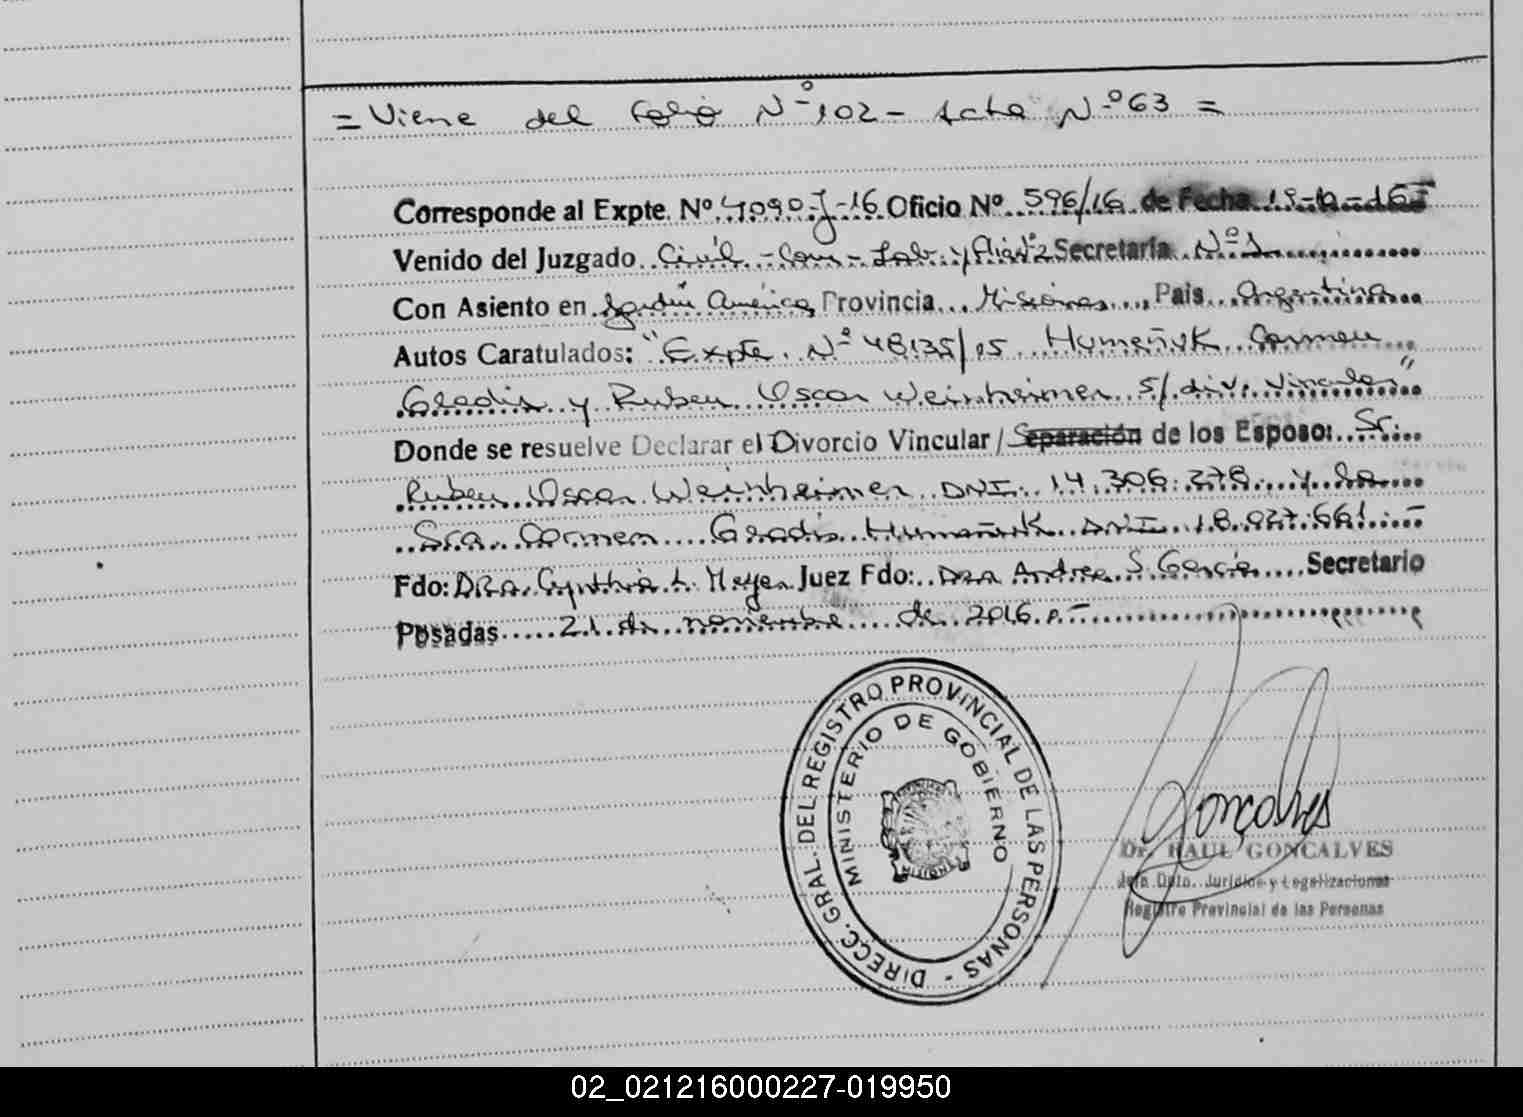 = Viene del folio Nº 102 - Acta Nº 63 =
Corresponde al Expte. Nº 4090-J-16 Oficio Nº 596/16 de Fecha
Venido del Juzgado Civil - Com - Lab. y Flia Nº 2 Secretaría Nº 1
Con Asiento en Jardín América, Provincia Misiones, Pais Argentina
Autos Caratulados: "Expte. Nº 48135/05 Humeñuk Carmen
Gladis y Ruben Oscar Weinheimer s/ div. vincular"
Donde se resuelve Declarar el Divorcio Vincular / Separación de los Esposo: Sr.
Ruben Oscar Weinheimer DNI: 14.306.278 y la
Sra Carmen Gladis Humañuk DNI 18.827.661.-
Fdo: DRA. Cynthia L. Meyer Juez Fdo: DRA Andrea S. García Secretario
Posadas 21 de noviembre de 2016.-
DIRECC. GRAL. DEL REGISTRO PROVINCIAL DE LAS PERSONAS -
MINISTERIO DE GOBIERNO
Gonçalves
Dr. RAUL GONCALVES
Jefe Dpto. Jurídico y Legalizaciones
Registro Provincial de las Personas
02_021216000227-019950